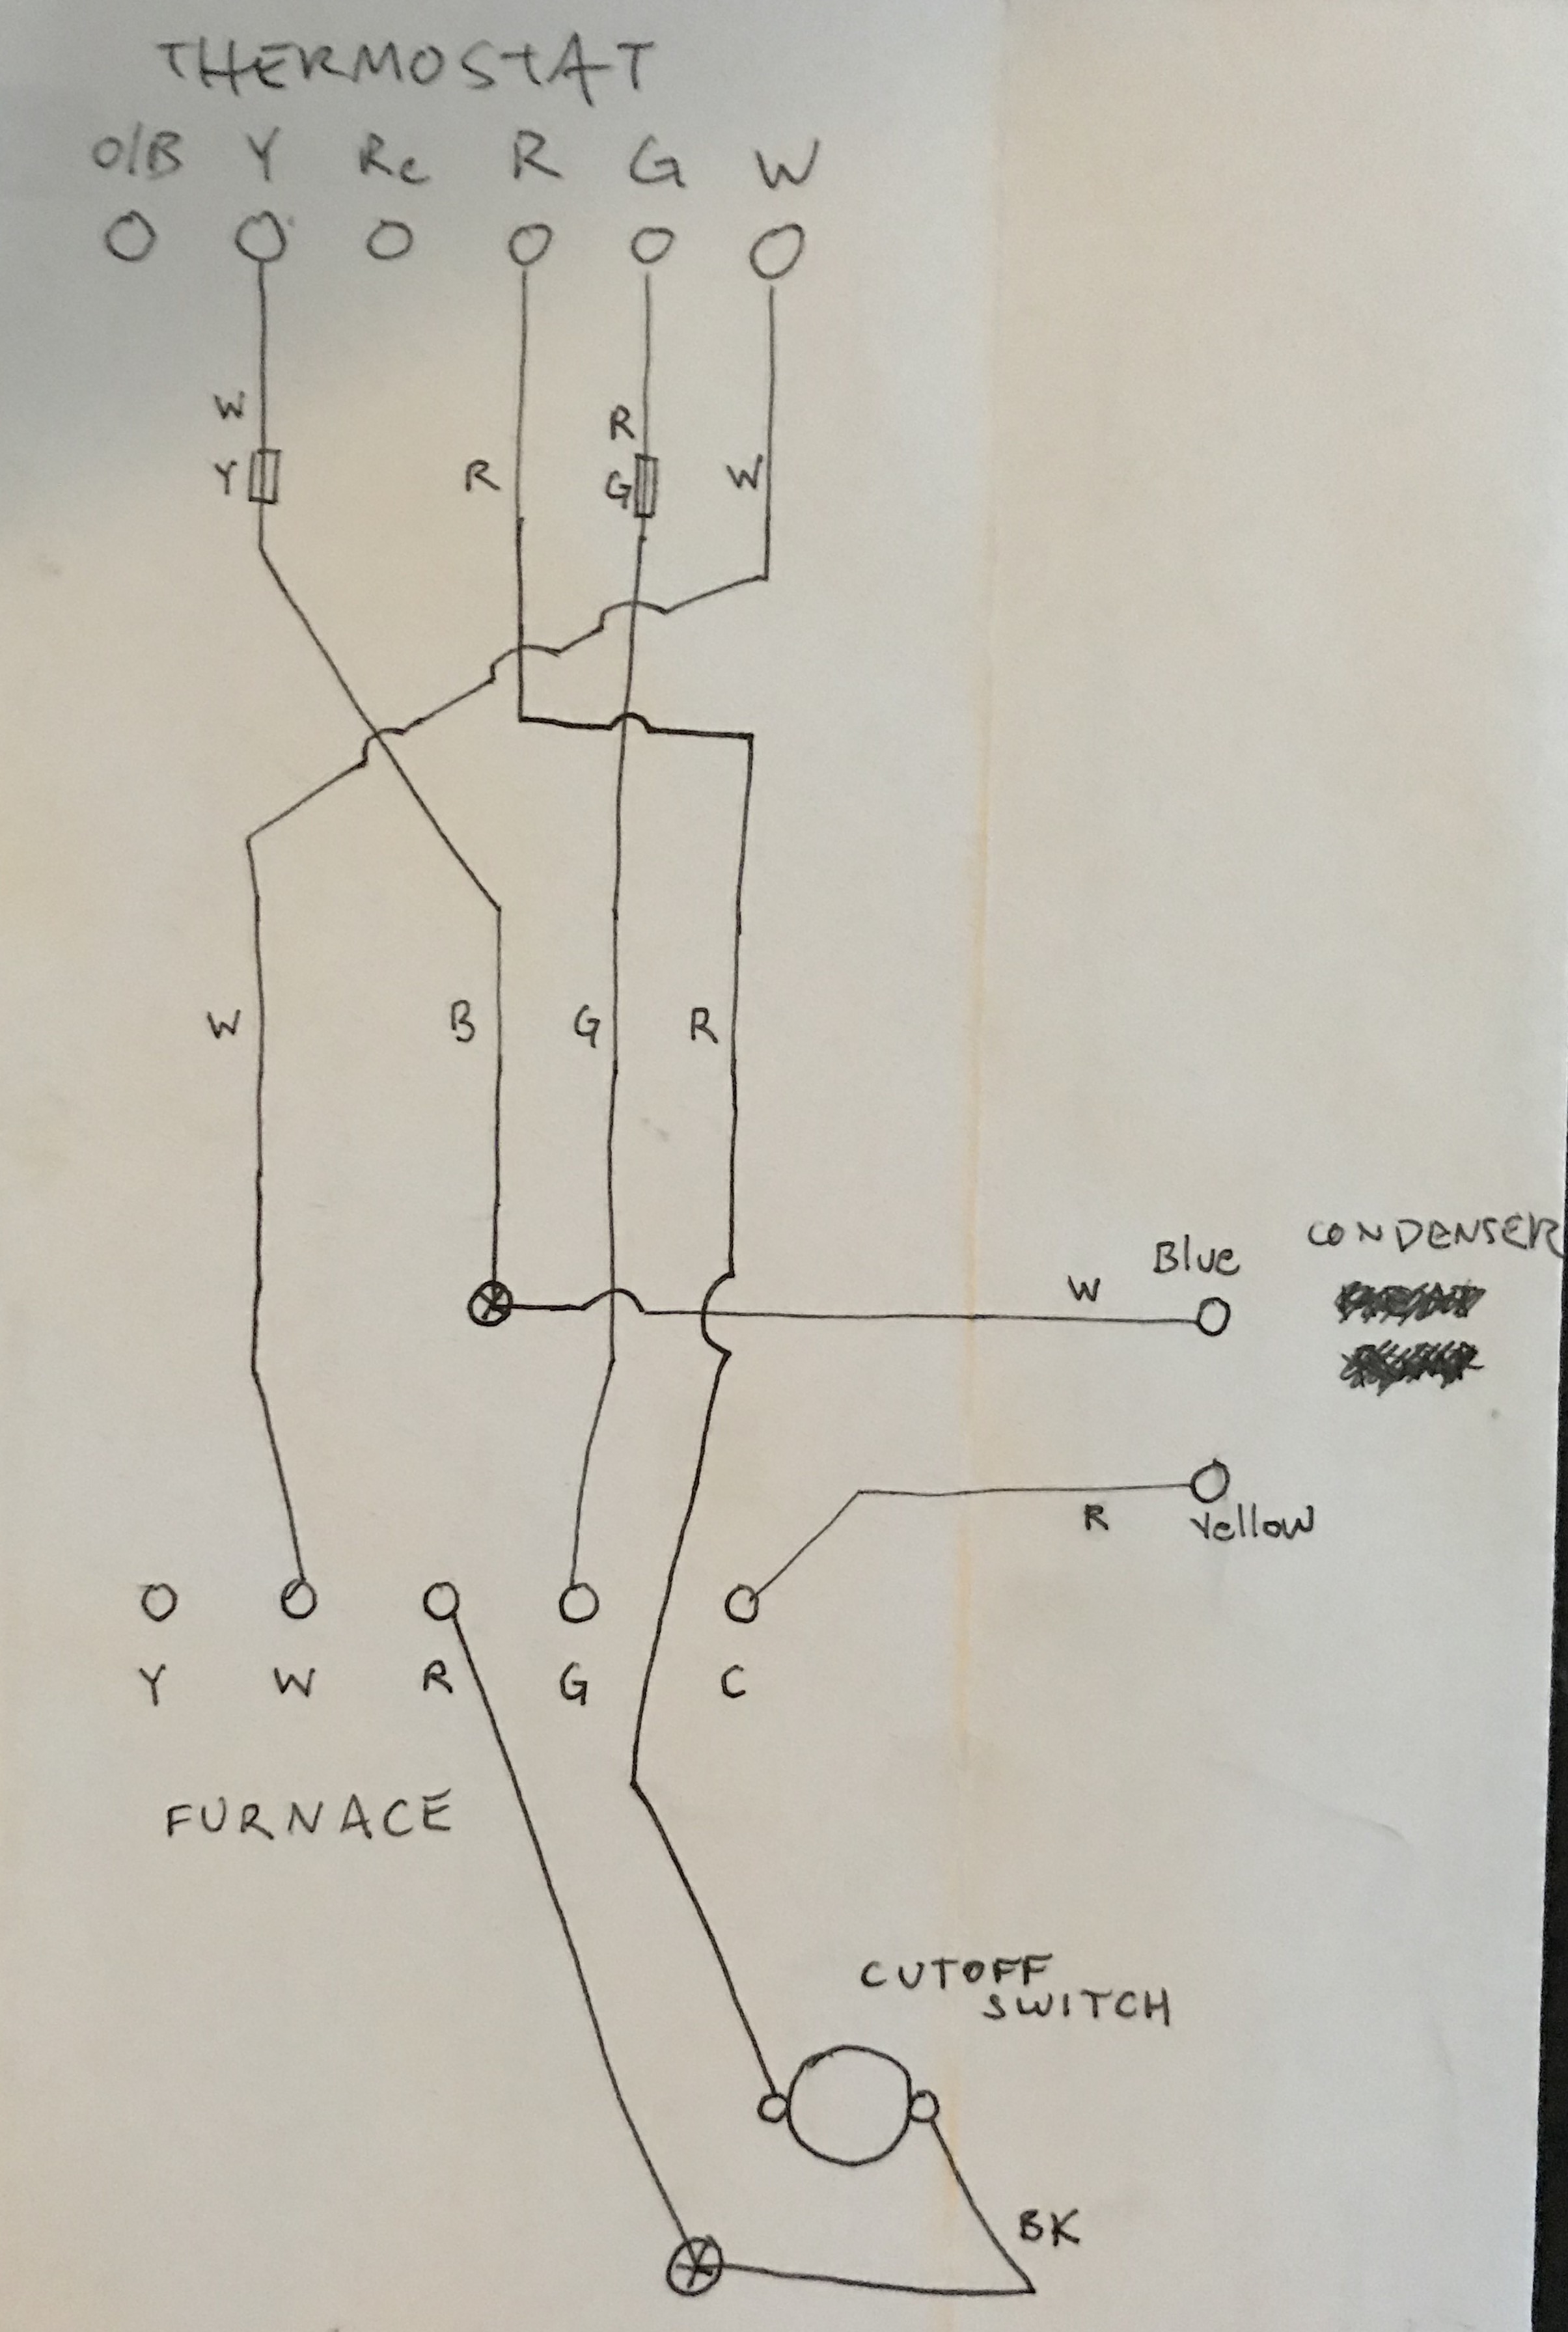 THERMOSTAT
O/B Y Rc R G W
W
R
Y R G W
W B G R
CONDENSER
Blue
W
R
Yellow
Y W R G C
FURNACE
CUTOFF
SWITCH
BK